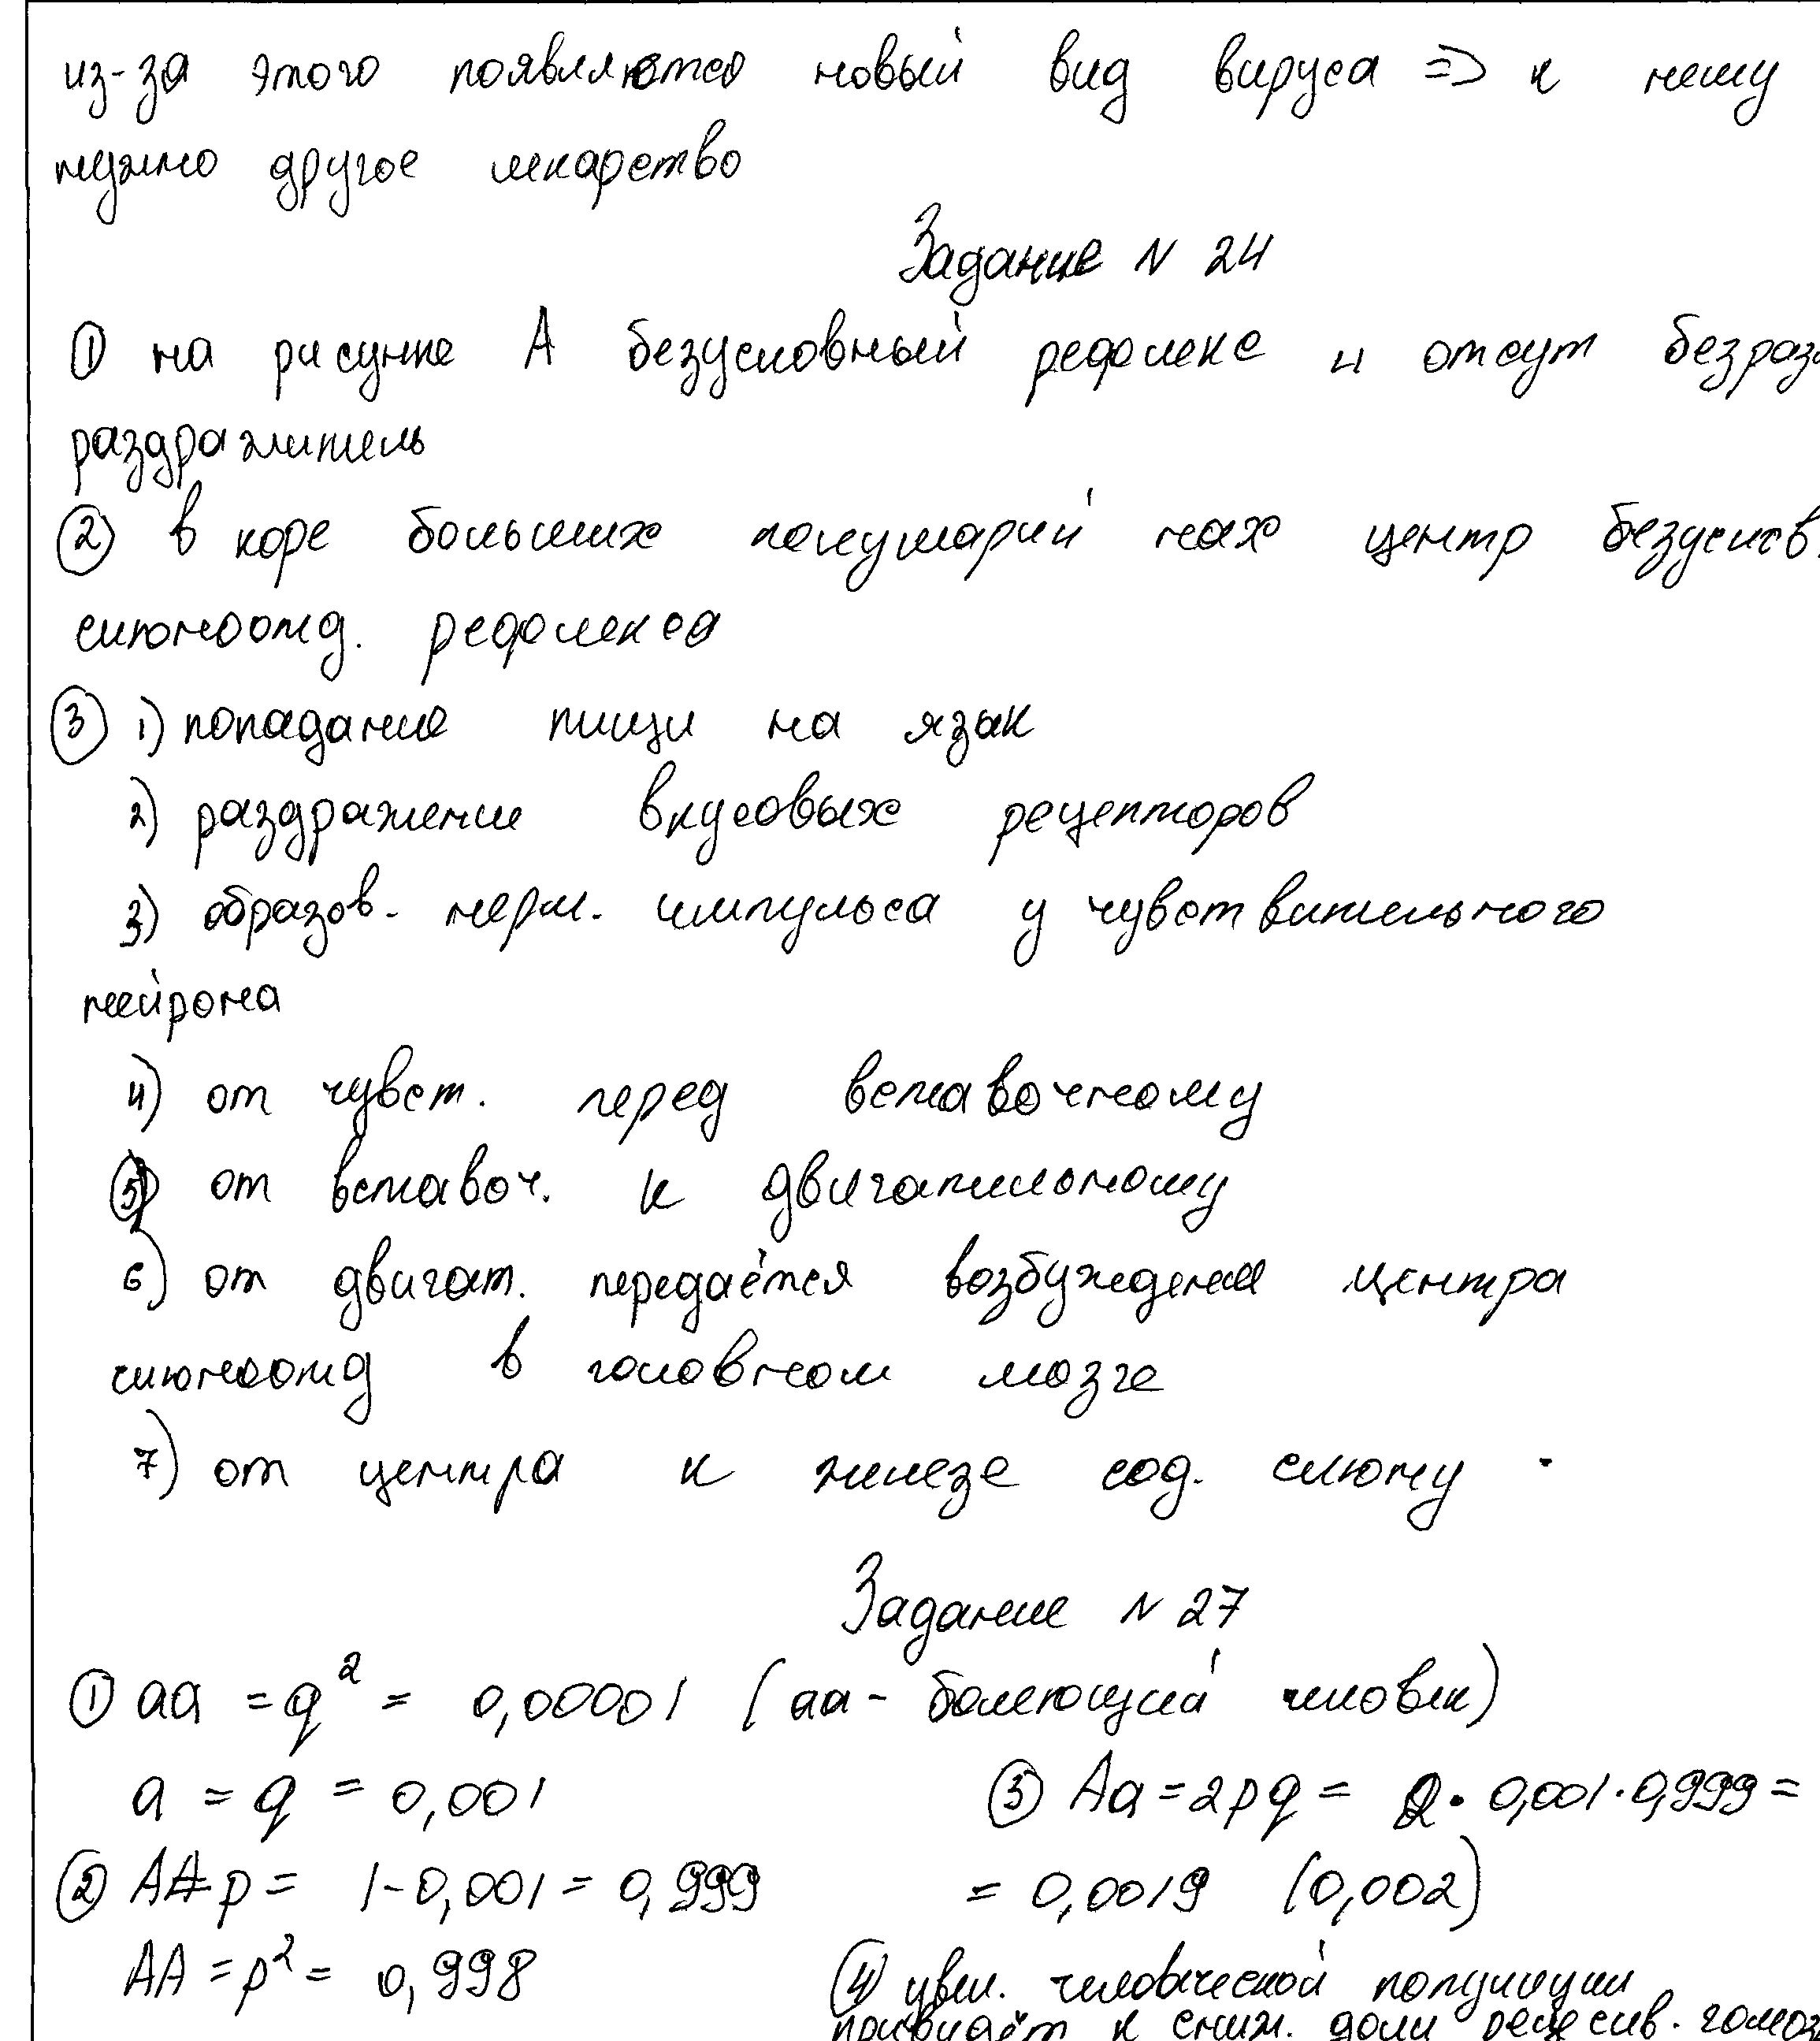 из-за этого появляются новый вид вируса => к нему
нужно другое лекарство
Задание N 24
① на рисунке А безусловный рефлекс и отсут безраз
раздражитель
② в коре больших полушарий нах центр безуслов.
слюноотд. рефлекса
③ 1) попадание пищи на язык
2) раздражение вкусовых рецепторов
3) образов. нерм. импульса у чувствительного
нейрона
4) от чувст. перед вставочному
5) от вставоч. к двигательному
6) от двигат. передаётся возбуждения центра
слюноотд в головном мозге
7) от центра к железе сод. слюну .
Задание N 27
① aa = q² = 0,00001 (аа - болеющий человек)
a = q = 0,001
② AA=p = 1-0,001 = 0,999
AA = p² = 0,998
③ Aa = 2pq = 2 · 0,001 · 0,999 =
= 0,0019 (0,002)
④ увел. человеческой популяции
приведёт к сниж. доли рецессив. гомоз